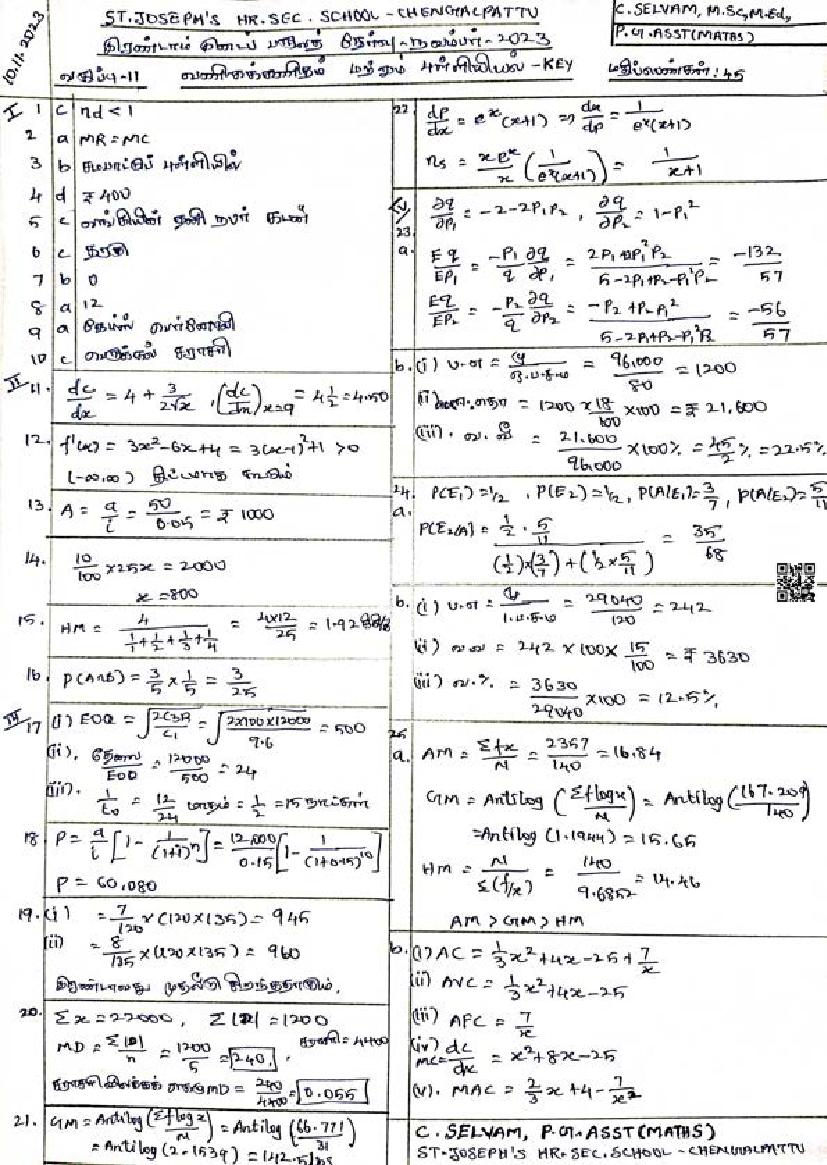 10.11.2023
ST. JOSEPH'S HR. SEC. SCHOOL - CHENGALPATTU
இரண்டாம் இடைப் பருவத் தேர்வு - நவம்பர் - 2023
வகுப்பு - 11 வணிகக்கணிதம் மற்றும் புள்ளியியல் - KEY
C. SELVAM, M.Sc, M.Ed,
P.G. ASST (MATHS)
மதிப்பெண்கள் : 45
I 1 c ηd < 1
2 a MR = MC
3 b சமவாட்டுப் புள்ளியில்
4 d ₹ 400
5 c வங்கியின் தனி நபர் கடன்
6 c தரகு
7 b 0
8 a 12
9 a
10 c பெருக்கல் சராசரி
II 11. dc/dx = 4 + 3/2√x , (dc/dx)x=9 = 4 1/2 = 4.50
12. f'(x) = 3x²-6x+4 = 3(x-1)²+1 > 0
(-∞,∞) திட்டமாக கூடும்
13. A = a/i = 50/0.05 = ₹ 1000
14. 10/100 × 25x = 2000
x = 800
15. HM = 4/(1/1+1/2+1/3+1/4) = 4×12/25 = 1.92
16. P(A∩B) = 3/5 × 1/5 = 3/25
III 17 (i) EOQ = √(2C3R/C1) = √(2×100×12000/9.6) = 500
(ii). தேவை/EOQ = 12000/500 = 24
(iii). 1/t0 = 12/24 மாதம் = 1/2 = 15 நாட்கள்
18 P = a/i [1 - 1/(1+i)ⁿ] = 12,000/0.15 [1 - 1/(1+0.15)¹⁰]
P = 60,080
19. (i) = 7/120 × (120×135) = 945
(ii) = 8/135 × (120×135) = 960
இரண்டாவது முதலீடு சிறந்ததாகும்.
20. Σx = 22000, Σ|D| = 1200
MD = Σ|D|/n = 1200/5 = 240, சராசரி = 4400
சராசரி விலக்கக் கெழு MD = 240/4400 = 0.055
21. GM = Antilog (Σflogx/N) = Antilog (66.771/31)
= Antilog (2.1539) = 142.5
22. dp/dx = eˣ(x+1) ⇒ dx/dp = 1/eˣ(x+1)
ηs = xeˣ/x (1/eˣ(x+1)) = 1/x+1
IV 23. a. ∂q/∂P1 = -2-2P1P2 , ∂q/∂P2 = 1-P1²
Eq/EP1 = -P1/q ∂q/∂P1 = 2P1+2P1²P2/5-2P1+P2-P1²P2 = -132/57
Eq/EP2 = -P2/q ∂q/∂P2 = -P2+P2P1²/5-2P1+P2-P1²P2 = -56/57
b. (i) ப.எ = = 96,000/80 = 1200
(ii) = 1200 × 18/100 × 100 = ₹ 21,600
(iii). வ.வீ = 21,600/96,000 × 100% = 45/2 % = 22.5%
24. a. P(E1) = 1/2 , P(E2) = 1/2, P(A/E1) = 3/7, P(A/E2) = 5/11
P(E2/A) = 1/2 · 5/11/(1/2)×(3/7)+(1/2×5/11) = 35/68
b. (i) ப.எ = = 29040/120 = 242
(ii) வ.வ = 242 × 100 × 15/100 = ₹ 3630
(iii) வ.% = 3630/29040 × 100 = 12.5%
25 a. AM = Σfx/N = 2357/140 = 16.84
GM = Antilog (Σflogx/N) = Antilog (167.209/140)
= Antilog (1.1944) = 15.65
HM = N/Σ(f/x) = 140/9.6852 = 14.46
AM > GM > HM
b. (i) AC = 1/3 x²+4x-25+7/x
(ii) AVC = 1/3 x²+4x-25
(iii) AFC = 7/x
(iv) MC = dc/dx = x²+8x-25
(v). MAC = 2/3 x+4-7/x²
C. SELVAM, P.G. ASST (MATHS)
ST. JOSEPH'S HR. SEC. SCHOOL - CHENGALPATTU